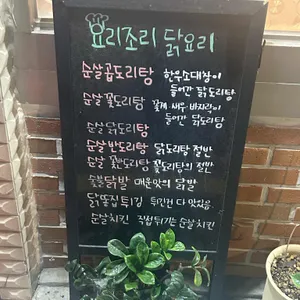 요리조리 닭요리
순살곱도리탕 한우소대창이 들어간 닭도리탕
순살 꽃도리탕 꽃게·새우·바지락이 들어간 닭도리탕
순살 닭도리탕
순살반도리탕 닭도리탕 절반
순살 꽃반도리탕 꽃도리탕의 절반
숯불닭발 매운맛의 닭발
닭똥집튀김 튀긴건 다 맛있음
순살치킨 직접튀기는 순살치킨